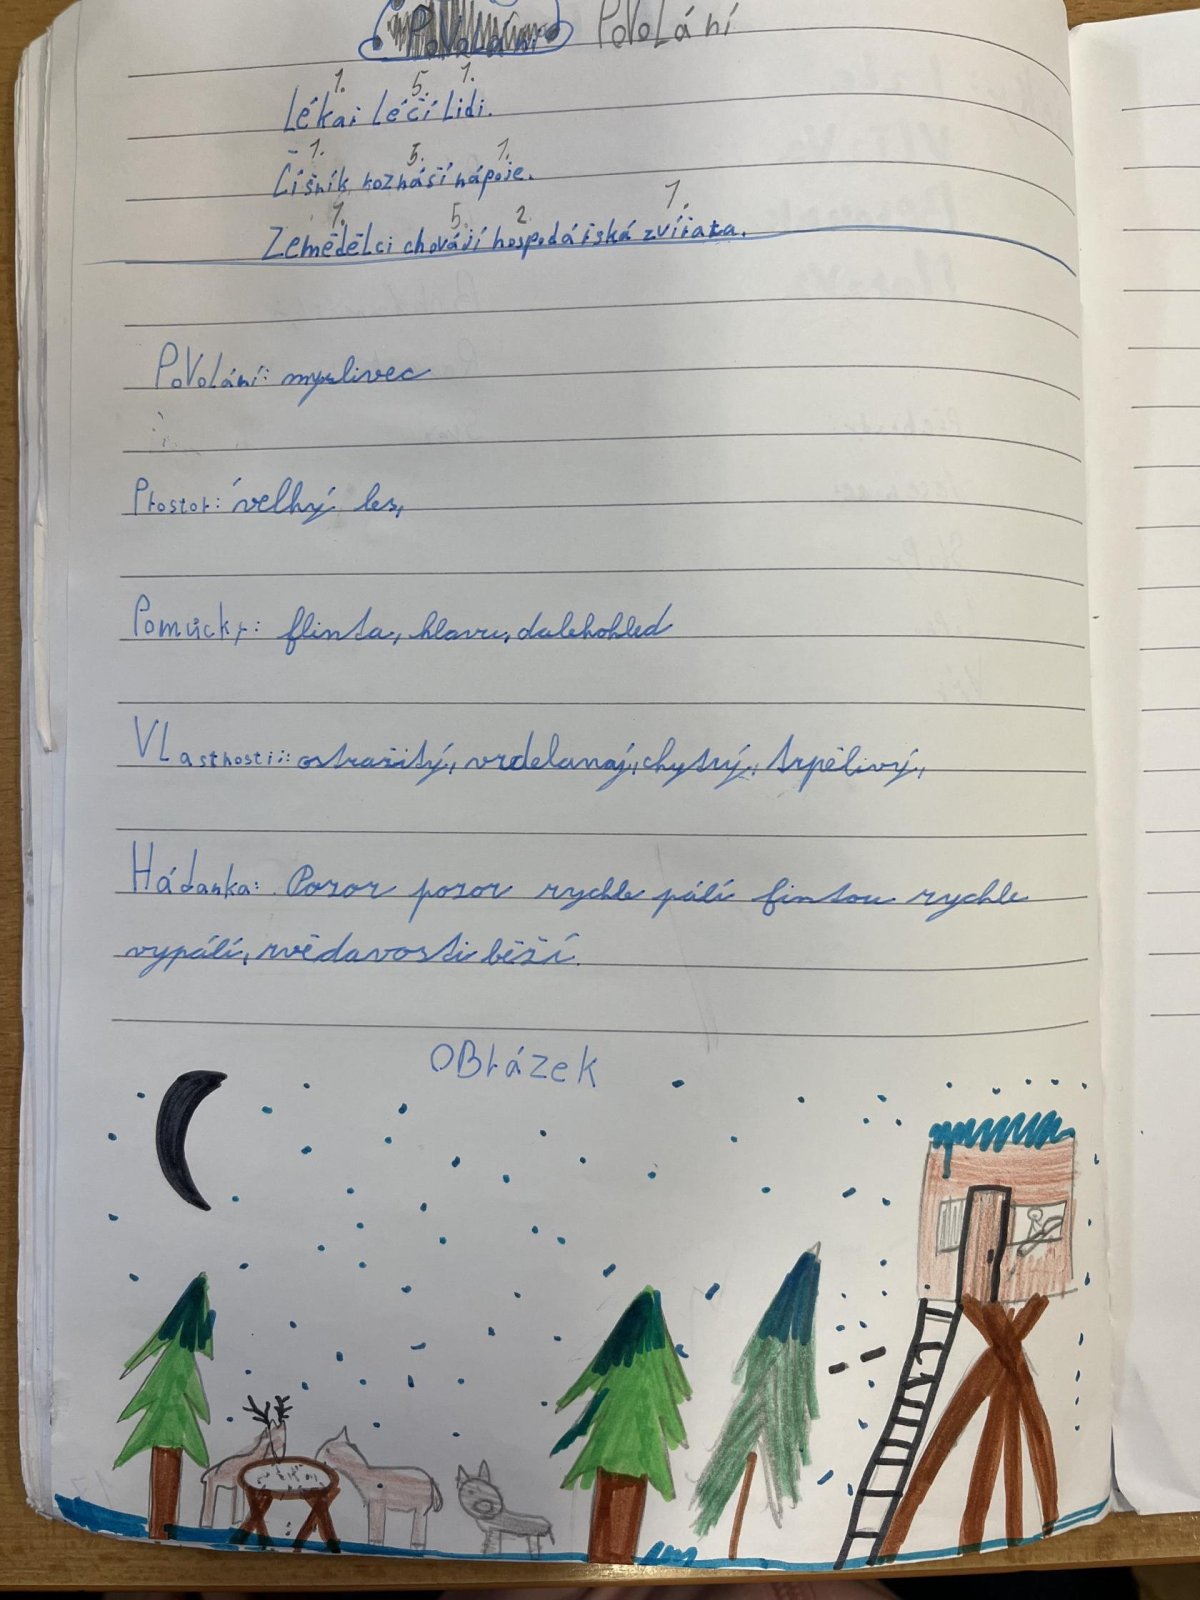 Povolání Povolání
1. 5. 1.
Lékař léčí lidi.
1. 5. 1.
Číšník roznáší nápoje.
1. 5. 2. 1.
Zemědělci chovájí hospodářská zvířata.
Povolání: myslivec
Prostor: velký les,
Pomůcky: flinta, hlavu, dalekohled
Vlastnosti: ostražitý, vzdelanaj, chytrý, trpělivý,
Hádanka: Pozor pozor rychle pálí fintou rychle
vypálí, zvědavosti běží.
OBrázek